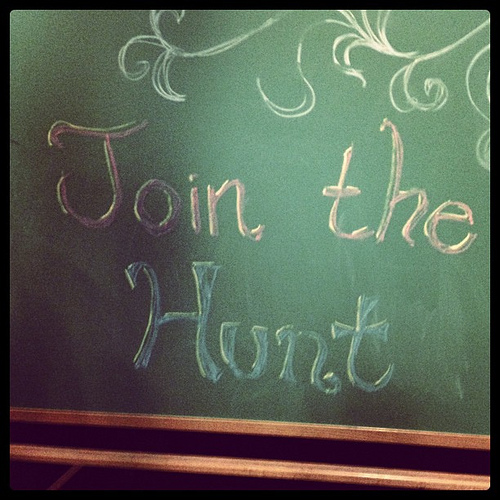 Join the
Hunt